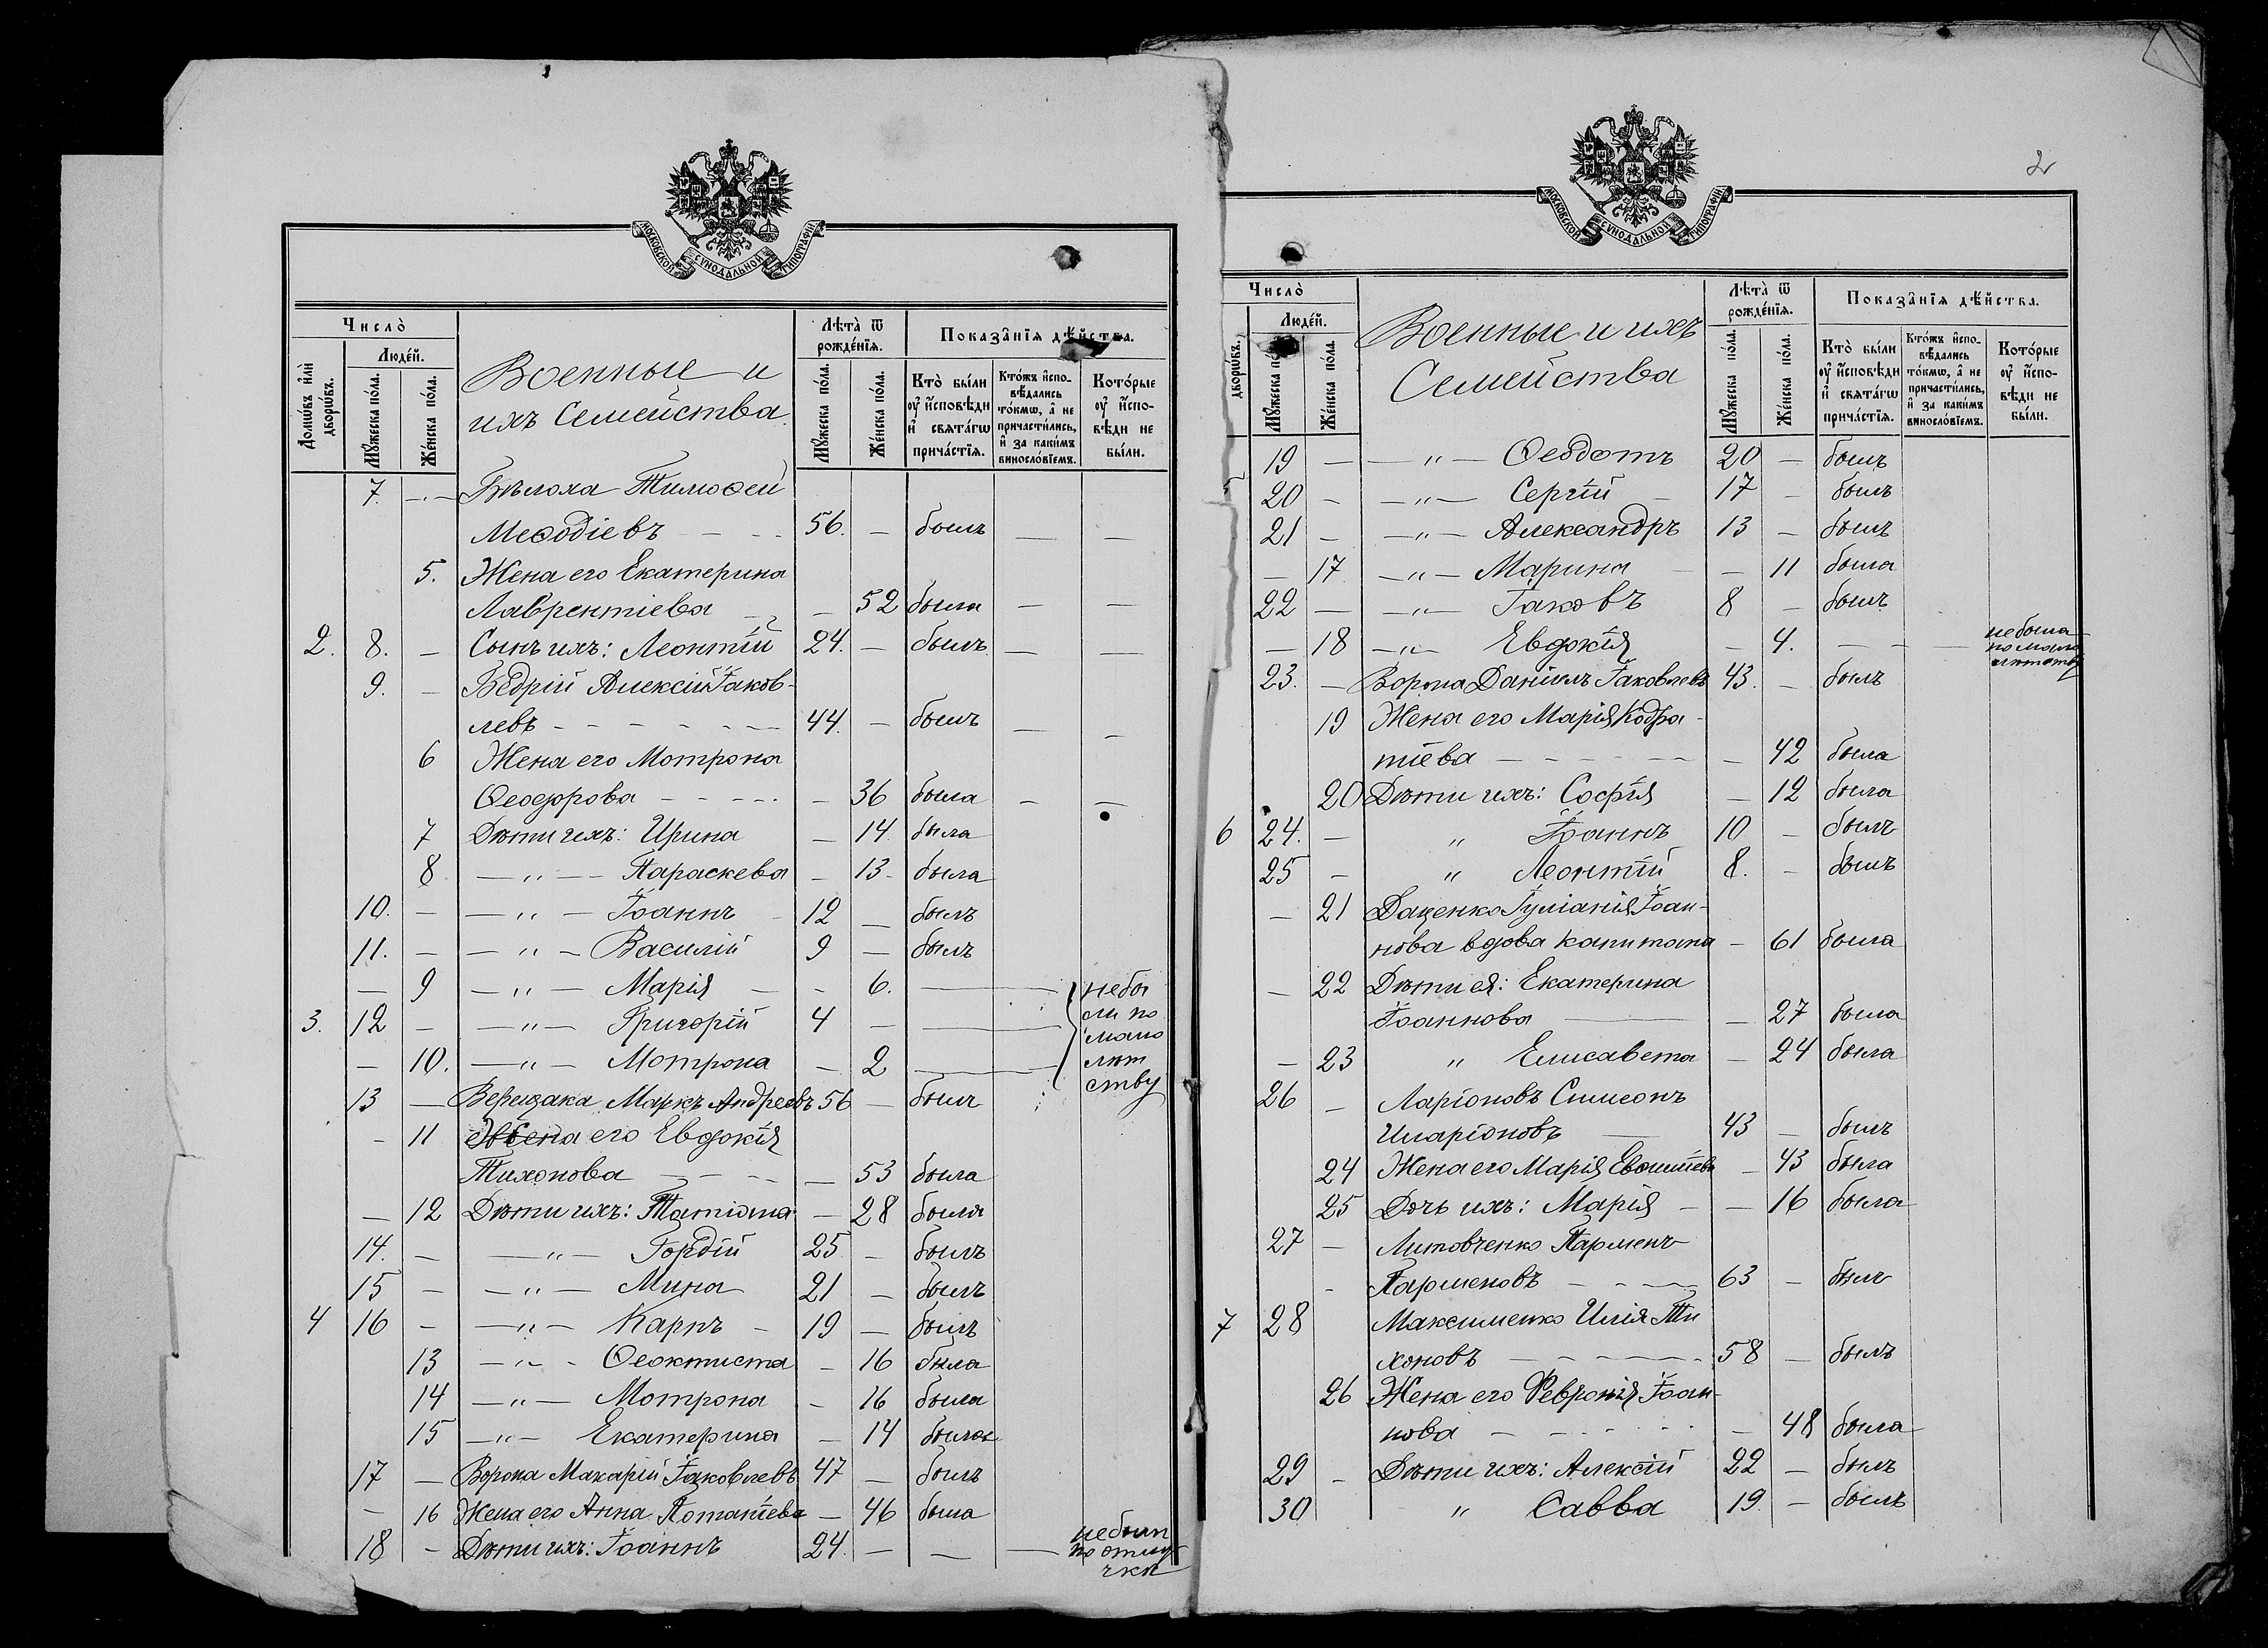 МОСКОВСКОЙ СѴНОДАЛЬНОЙ ТИПОГРАФІИ
Число̀
Люде́й.
Домѡ́въ и҆лѝ дворѡ́въ.
Мꙋ́жеска по́ла.
Же́нска по́ла.
Военные и
ихъ Семейства
Лѣ́та ѿ рожде́нїѧ.
Мꙋ́жеска по́ла.
Же́нска по́ла.
Показа̑нїѧ дѣ́йства.
Кто̀ бы́ли
ᲂу҆ и҆сповѣди
и҆ свѧта́гѡ
прича́стїѧ.
Кто́жъ и҆спо-
вѣдались
то́кмѡ, а҆ не
причасти́лись,
и҆ за каки́мъ
винослові́емъ.
Кото́рые
ᲂу҆ и҆спо-
вѣди не
бы́ли.
7. — Бѣлоха Тимоѳей
Меѳодіевъ 56. — былъ — —
5. Жена его Екатерина
Лаврентіева — 52 была — —
2. 8. — Сынъ ихъ: Леонтій 24. — былъ — —
9. — Бедрій Алексій Іаков-
левъ 44. — былъ — —
6 Жена его Мотрона
Ѳеодорова — 36 была — —
7 Дѣти ихъ: Ирина — 14. была
8 — " — Параскева — 13. была
10. — — " — Іоаннъ 12 — былъ
11. — — " — Василій 9 — былъ
— 9 — " — Марія — 6. — небы
3. 12 — — " — Григорій 4 — — ли по
мало
— 10. — " — Мотрона — 2 — лѣт
ству
13 — Верещака Маркъ Андреевъ 56 — былъ
— 11 Жена его Евдокія
Тихонова — 53 была
— 12 Дѣти ихъ: Татіана — 28 была
14. — — " — Гордій 25 — былъ
15 — — " — Мина 21 — былъ
4 16 — — " — Карпъ 19 — былъ
13 — " — Ѳеоктиста — 16 была
14 — " — Мотрона — 16 была
15 — " — Екатерина — 14 была
17 — Ворона Макарій Іаковлевъ 47 — былъ
— 16 Жена его Анна Потапіева — 46 была
18 — Дѣти ихъ: Іоаннъ 24. — — — небылъ
по отлу-
чкѣ
2
МОСКОВСКОЙ СѴНОДАЛЬНОЙ ТИПОГРАФІИ
Число̀
Люде́й.
дворѡ́въ.
Мꙋ́жеска по́ла.
Же́нска по́ла.
Военные и ихъ
Семейства
Лѣ́та ѿ рожде́нїѧ.
Мꙋ́жеска по́ла.
Же́нска по́ла.
Показа̑нїѧ дѣ́йства.
Кто̀ бы́ли
ᲂу҆ и҆сповѣди
и҆ свѧта́гѡ
прича́стїѧ.
Кто́жъ и҆спо-
вѣдались
то́кмѡ, а҆ не
причасти́лись,
и҆ за каки́мъ
винослові́емъ.
Кото́рые
ᲂу҆ и҆спо-
вѣди не
бы́ли.
19 — — " — Ѳеодотъ 20 — былъ
5 20 — — " — Сергій 17 — былъ
21 — — " — Александръ 13 — былъ
— 17 — " — Марина — 11 была
22 — — " — Іаковъ 8 — былъ
— 18 — " — Евдокія — 4. — — небыла
по мало
лѣтству
23. — Ворона Даніилъ Іаковлевъ 43. — былъ
19 Жена его Марія Кодра-
тіева — 42 была
20 Дѣти ихъ: Софія — 12 была
6 24. — " Іоаннъ 10 — былъ
25 — " Леонтій 8. — былъ
— 21 Даценко Іуліанія Іоан-
нова вдова капитана — 61 была
— 22 Дѣти ея: Екатерина
Іоаннова — 27 была
— 23 " Елисавета — 24 была
26 — Ларіоновъ Симеонъ
Иларіоновъ 43 — былъ
24 Жена его Марія — 43 была
25 Дочь ихъ: Марія — 16 была
27 — Литовченко Парменъ
Парменовъ 63 — былъ
7 28 Максименко Илія Ти
хоновъ 58 — былъ
26 Жена его Февронія Іоан-
нова — 48 была
29 — Дѣти ихъ: Алексій 22 — былъ
30 " Савва 19. — былъ